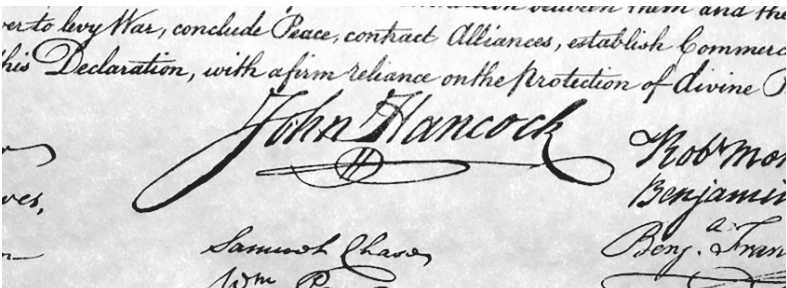 between them and the
ver to levy War, conclude Peace, contract Alliances, establish Commerc
his Declaration, with a firm reliance on the Protection of divine P
John Hancock
Robt Mor
ves,
Benjamin
Samuel Chase
Benj. Fran
Wm P